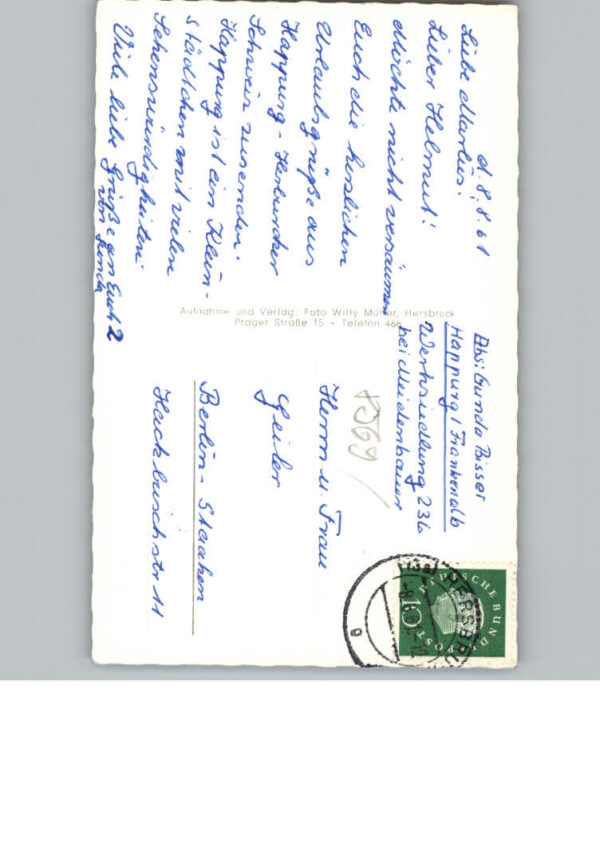 d. 8.8.61
Liebe Marlies!
Lieber Helmut!
Möchte nicht versäumen
Euch die herzlichen
Urlaubsgrüße aus
Happurg - Hersbrucker
Schweiz zusenden.
Happurg ist ein Klein-
städtchen mit vielen
Sehenswürdigkeiten.
Viele liebe Grüße an Euch 2
von
Aufnahme und Verlag: Foto Willy Müller, Hersbruck
Prager Straße 15 • Telefon 466
Abs: Gunda
Happurg / Frankenalb
Werksiedlung 236
bei Meidenbauer
Herrn u. Frau
Geiler
Berlin - Staaken
Hackbuschstr 11
DEUTSCHE BUNDESPOST
10
HERSBRU